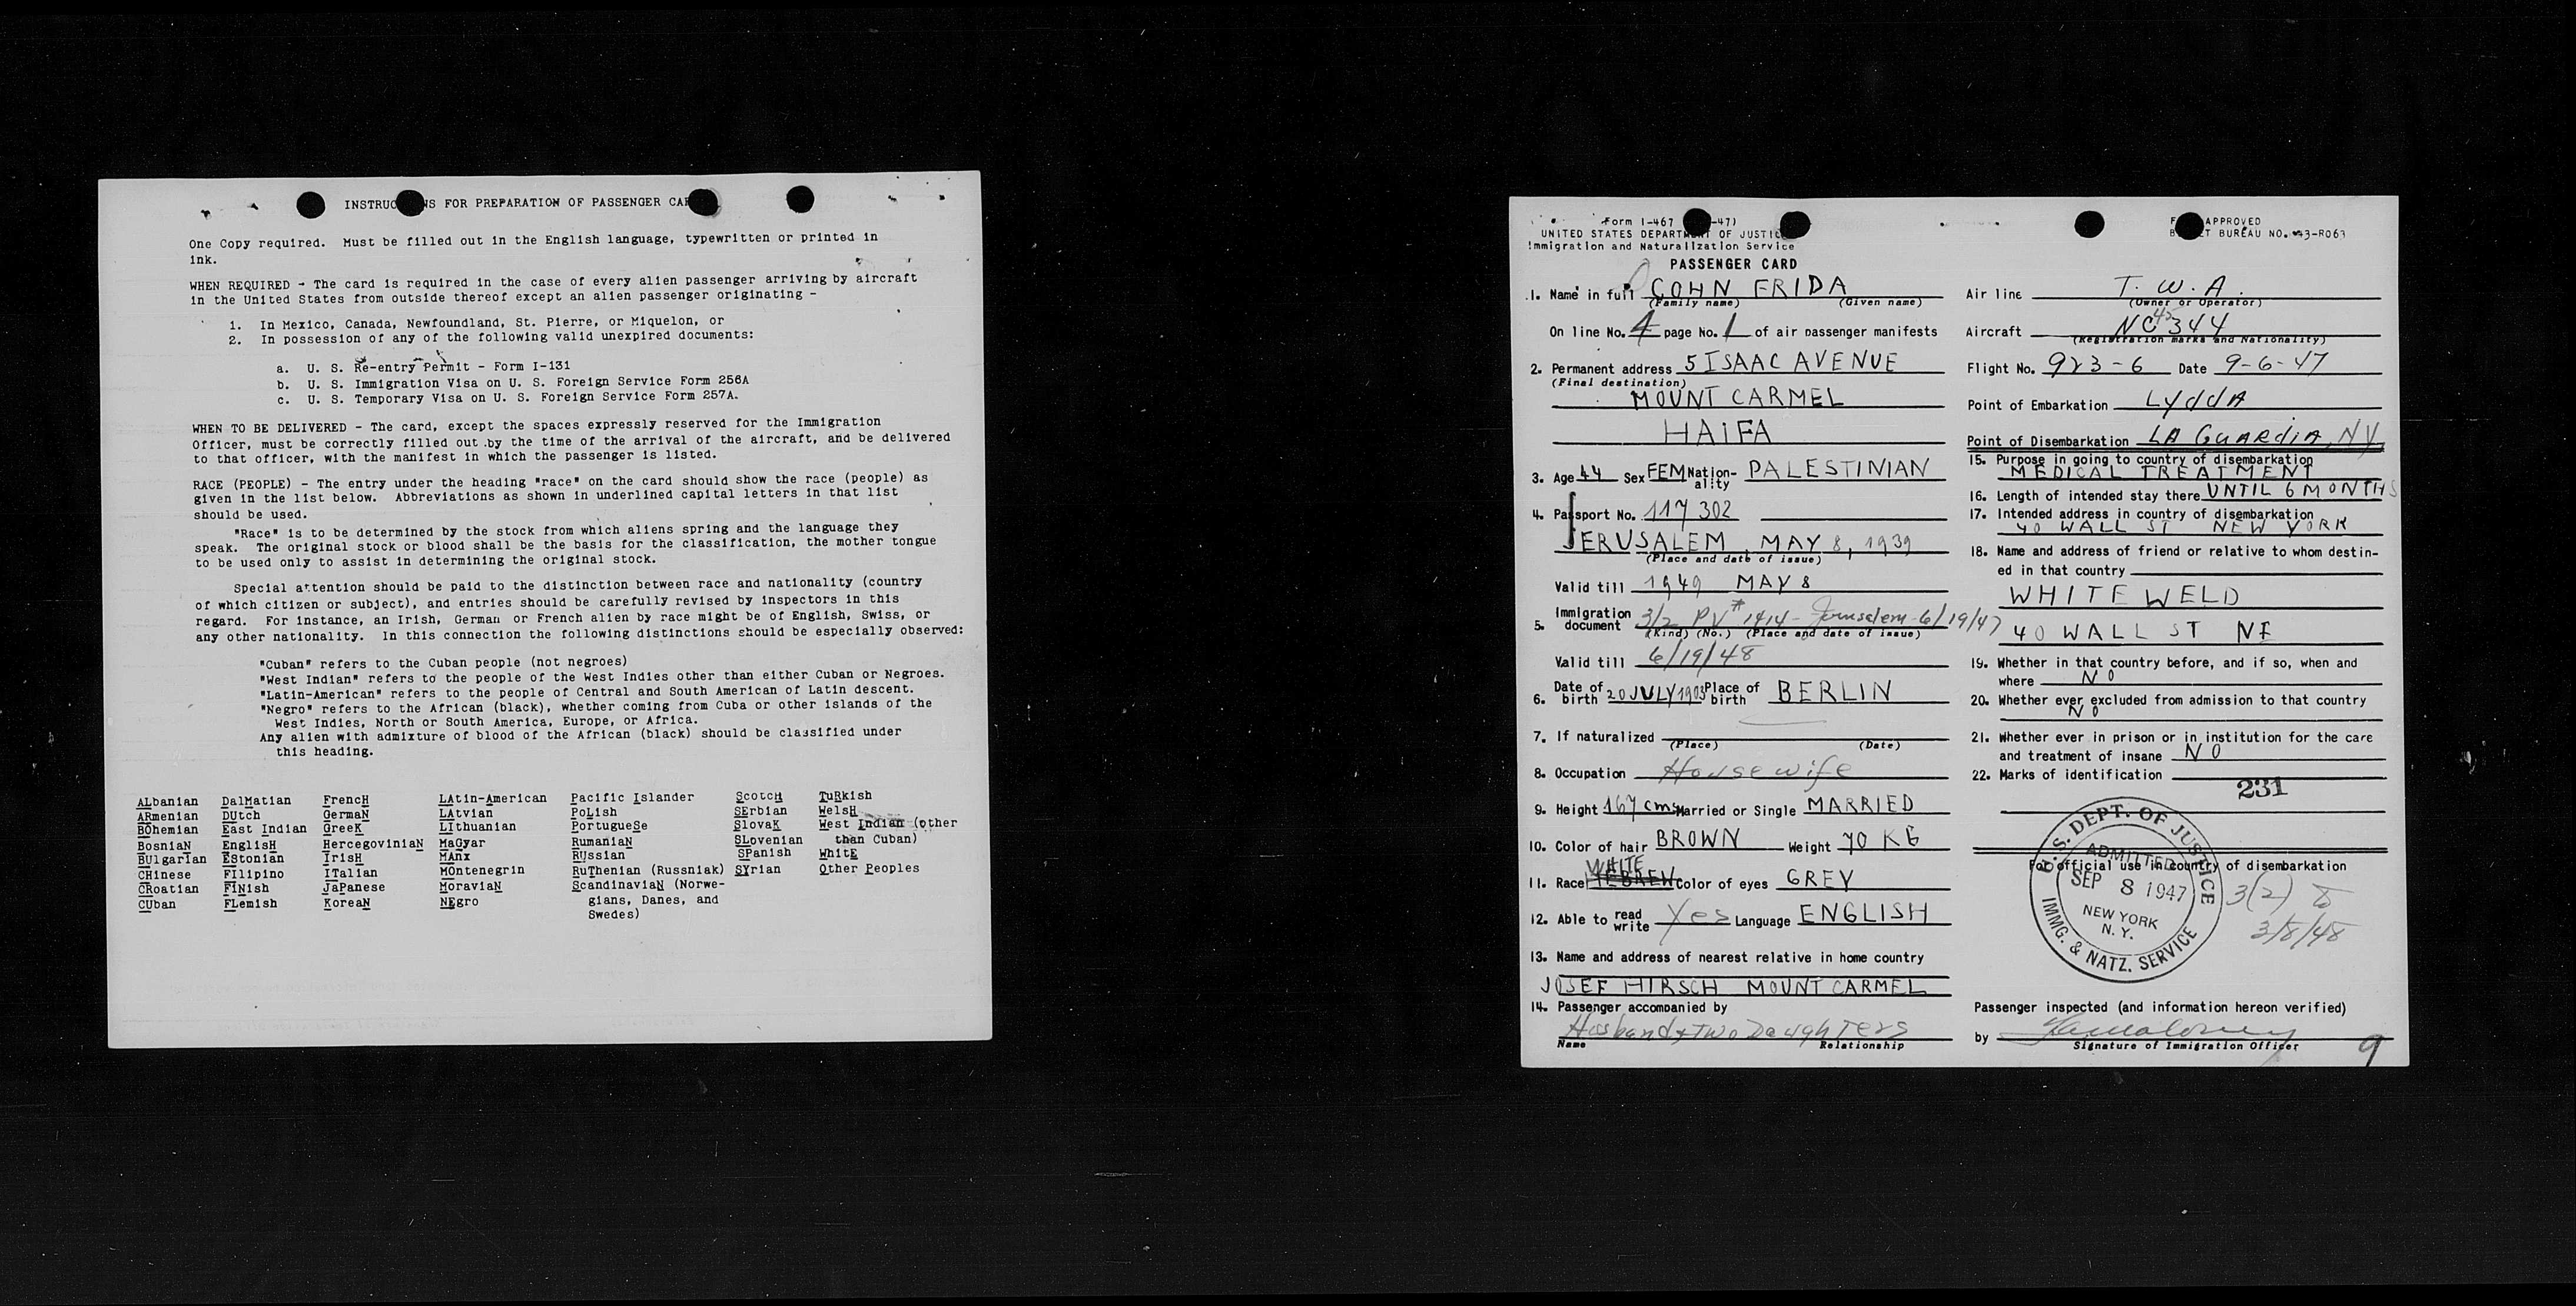 INSTRUC NS FOR PREPARATION OF PASSENGER CAR
One Copy required. Must be filled out in the English language, typewritten or printed in
ink.
WHEN REQUIRED - The card is required in the case of every alien passenger arriving by aircraft
in the United States from outside thereof except an alien passenger originating -
1. In Mexico, Canada, Newfoundland, St. Pierre, or Miquelon, or
2. In possession of any of the following valid unexpired documents:
a. U. S. Re-entry Permit - Form I-131
b. U. S. Immigration Visa on U. S. Foreign Service Form 256A
c. U. S. Temporary Visa on U. S. Foreign Service Form 257A.
WHEN TO BE DELIVERED - The card, except the spaces expressly reserved for the Immigration
Officer, must be correctly filled out by the time of the arrival of the aircraft, and be delivered
to that officer, with the manifest in which the passenger is listed.
RACE (PEOPLE) - The entry under the heading "race" on the card should show the race (people) as
given in the list below. Abbreviations as shown in underlined capital letters in that list
should be used.
"Race" is to be determined by the stock from which aliens spring and the language they
speak. The original stock or blood shall be the basis for the classification, the mother tongue
to be used only to assist in determining the original stock.
Special attention should be paid to the distinction between race and nationality (country
of which citizen or subject), and entries should be carefully revised by inspectors in this
regard. For instance, an Irish, German or French alien by race might be of English, Swiss, or
any other nationality. In this connection the following distinctions should be especially observed:
"Cuban" refers to the Cuban people (not negroes)
"West Indian" refers to the people of the West Indies other than either Cuban or Negroes.
"Latin-American" refers to the people of Central and South American of Latin descent.
"Negro" refers to the African (black), whether coming from Cuba or other islands of the
West Indies, North or South America, Europe, or Africa.
Any alien with admixture of blood of the African (black) should be classified under
this heading.
ALbanian DalMatian FrencH LAtin-American Pacific Islander ScotcH TuRkish
ARmenian DUtch GermaN LAtvian PoLish SErbian WelsH
BOhemian East Indian GreeK LIthuanian PortugueSe SlovaK West Indian (other
BosniaN EnglisH HercegoviniaN MaGyar RumaniaN SLovenian than Cuban)
BUlgarIan EStonian IrisH MAnx RUssian SPanish WhitE
CHinese FIlipino ITalian MOntenegrin RuThenian (Russniak) SYrian Other Peoples
CRoatian FINish JaPanese MoraviaN ScandinaviaN (Norwe-
CUban FLemish KoreaN NEgro gians, Danes, and
Swedes)
Form I-467 -47)
UNITED STATES DEPARTMENT OF JUSTIC
Immigration and Naturalization Service
PASSENGER CARD
1. Name in full COHN FRIDA
(Family name) (Given name)
On line No. 4 page No. 1 of air passenger manifests
2. Permanent address 5 ISAAC AVENUE
(Final destination)
MOUNT CARMEL
HAIFA
3. Age 44 Sex FEM Nation-ality PALESTINIAN
4. Passport No. 117 302
JERUSALEM, MAY 8, 1939
(Place and date of issue)
Valid till 1949 MAY 8
5. Immigration document 3/2 PV # 1414 - Jerusalem - 6/19/47
(Kind) (No.) (Place and date of issue)
Valid till 6/19/48
6. Date of birth 20 JULY 1903 Place of birth BERLIN
7. If naturalized
(Place) (Date)
8. Occupation Housewife
9. Height 167 cms Married or Single MARRIED
10. Color of hair BROWN Weight 70 KG
WHITE
11. Race HEBREW Color of eyes GREY
12. Able to read write Yes Language ENGLISH
13. Name and address of nearest relative in home country
JOSEF HIRSCH MOUNT CARMEL
14. Passenger accompanied by
Husband & Two Daughters
Name Relationship
F APPROVED
B T BUREAU NO. 43-R063
Air line T. W. A.
(Owner or Operator)
45
Aircraft NC 344
(Registration marks and Nationality)
Flight No. 923-6 Date 9-6-47
Point of Embarkation LyddA
Point of Disembarkation LA GUARdiA, NY
15. Purpose in going to country of disembarkation
MEDICAL TREATMENT
16. Length of intended stay there UNTIL 6 MONTHS
17. Intended address in country of disembarkation
40 WALL ST NEW YORK
18. Name and address of friend or relative to whom destin-
ed in that country
WHITE WELD
40 WALL ST
19. Whether in that country before, and if so, when and
where NO
20. Whether ever excluded from admission to that country
NO
21. Whether ever in prison or in institution for the care
and treatment of insane NO
22. Marks of identification
231
For official use in country of disembarkation
U. S. DEPT. OF JUSTICE
ADMITTED
SEP 8 1947
NEW YORK
N. Y.
IMMIG. & NATZ. SERVICE
3(2) to
3/8/48
Passenger inspected (and information hereon verified)
by
Signature of Immigration Officer
9